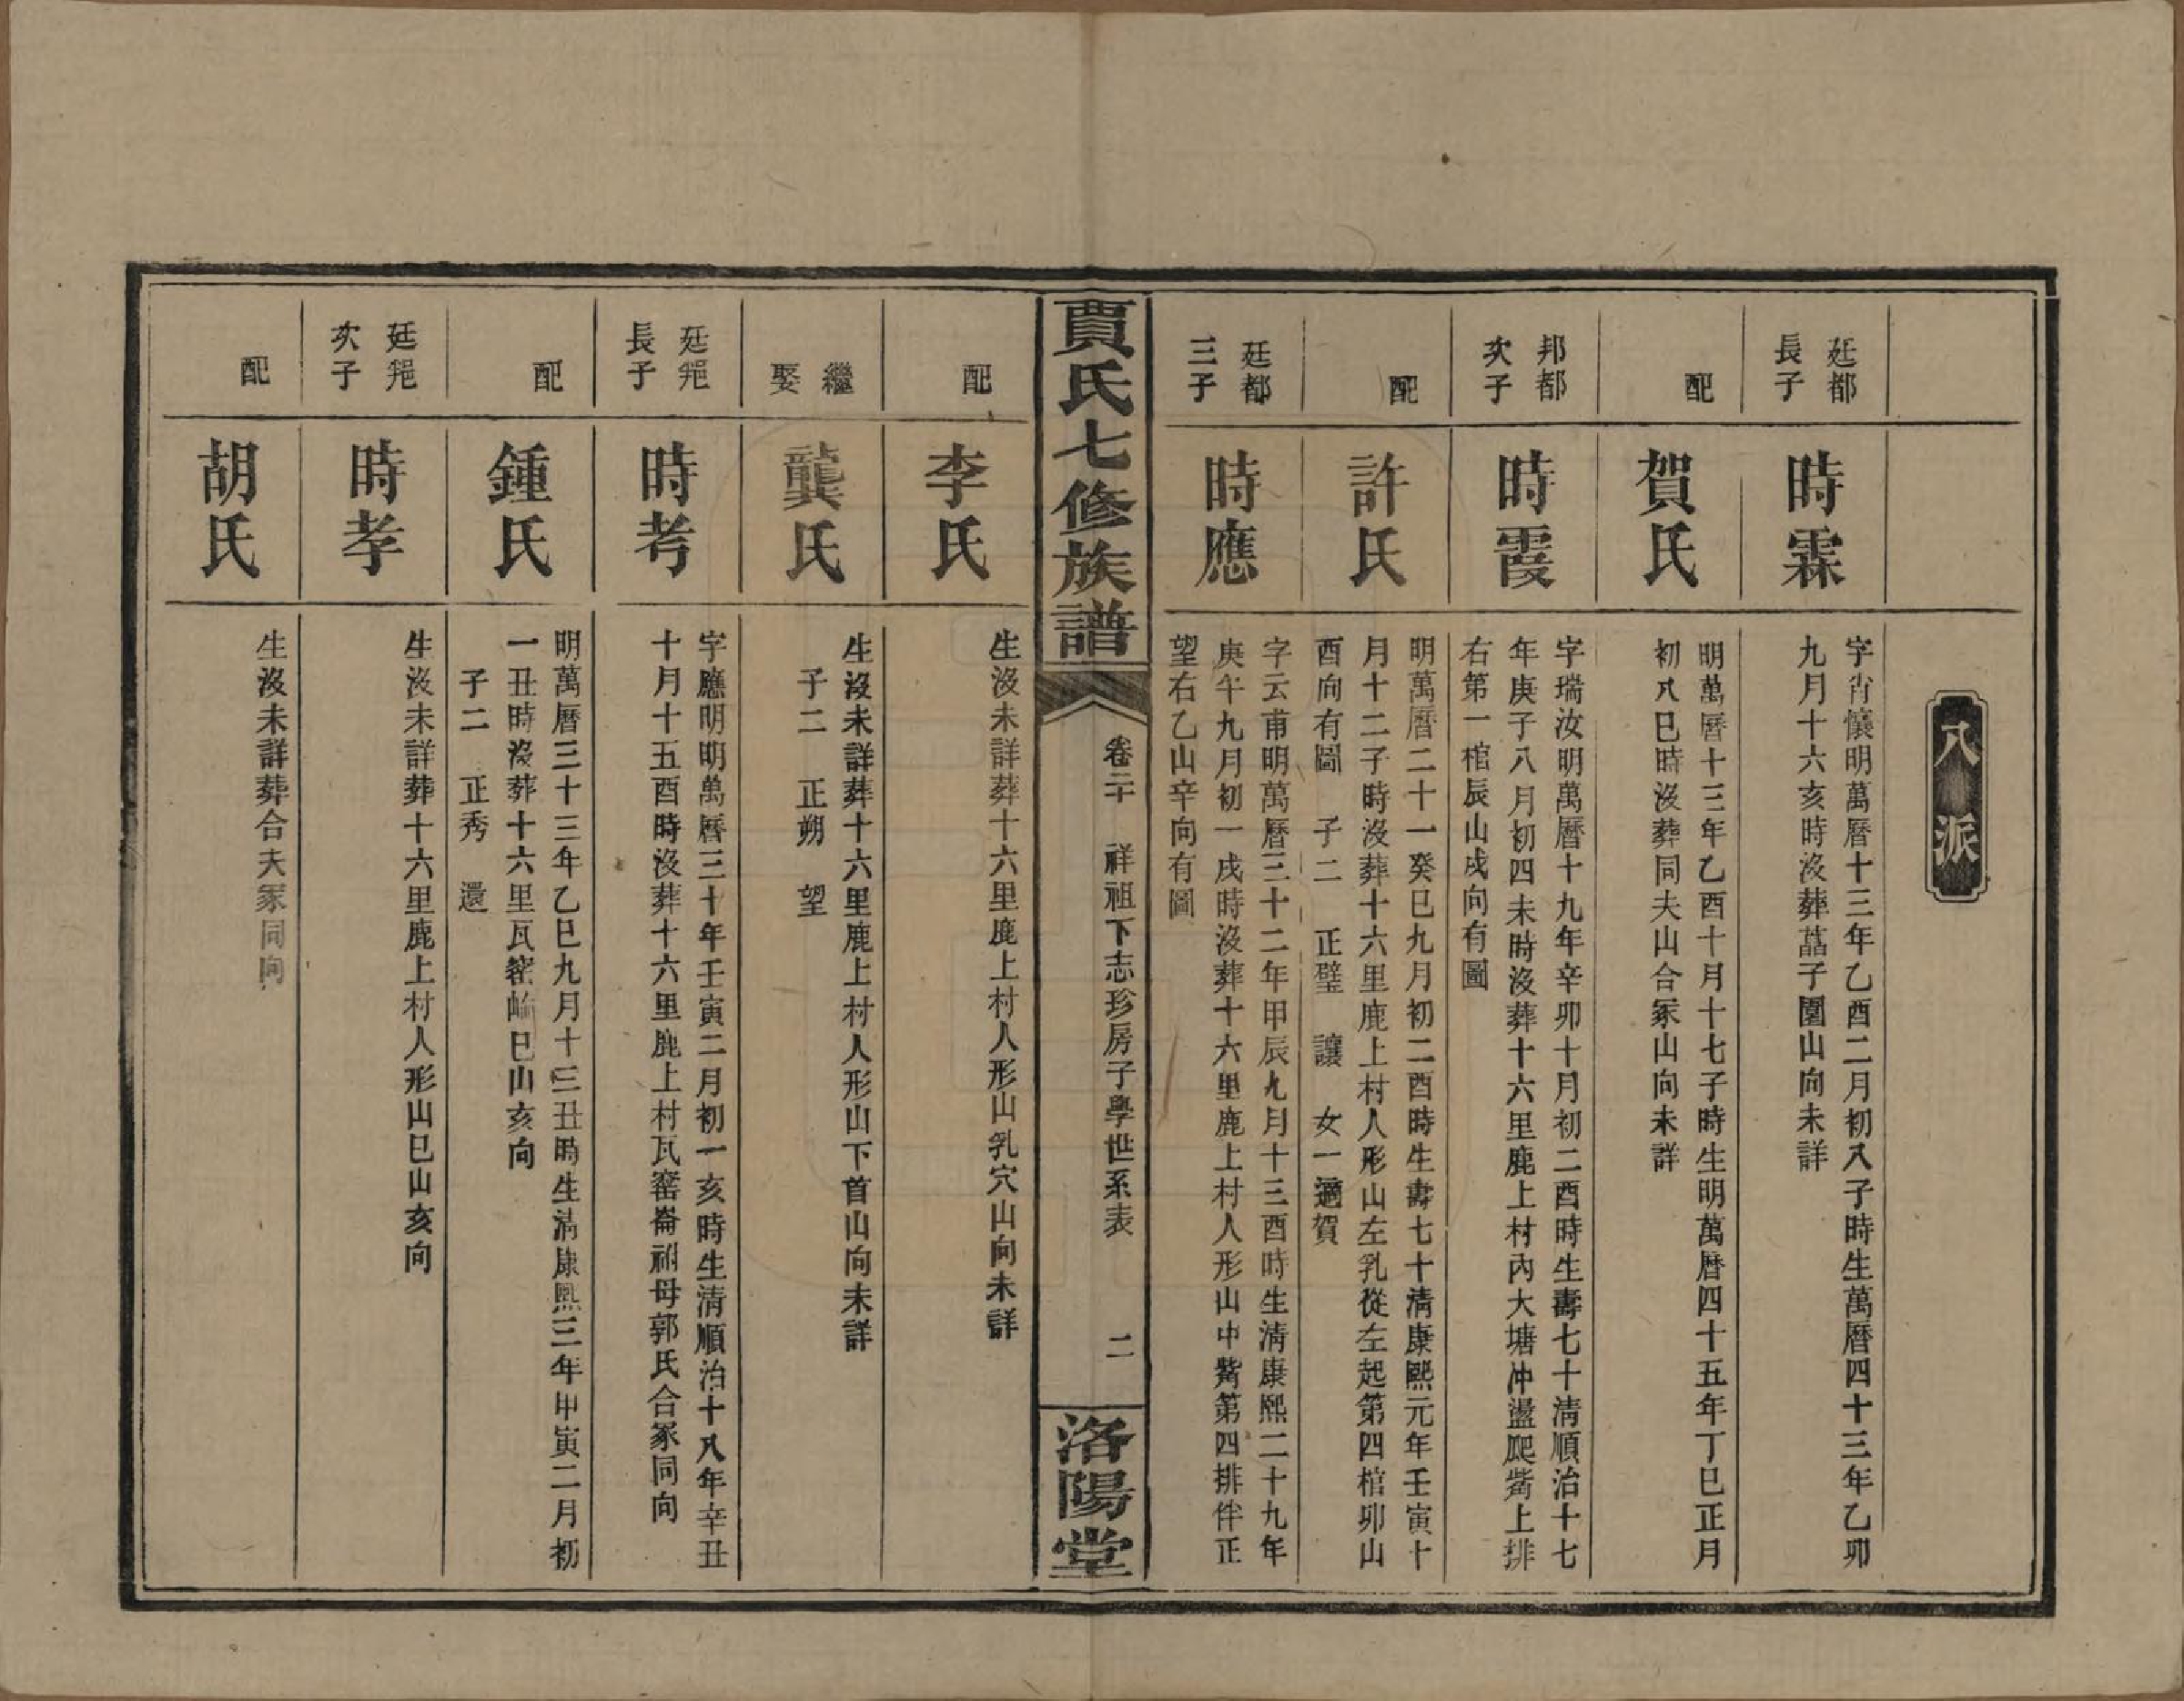 八派
廷都
長子
時霖
字肯懷明萬曆十三年乙酉二月初八子時生萬曆四十三年乙卯
九月十六亥時沒葬萜子園山向未詳
配
賀氏
明萬曆十三年乙酉十月十七子時生明萬曆四十五年丁巳正月
初八巳時沒葬同夫山合冢山向未詳
邦都
次子
時霞
字瑞汝明萬曆十九年辛卯十月初二酉時生壽七十清順治十七
年庚子八月初四未時沒葬十六里鹿上村內大塘冲盪爬觜上排
右第一棺辰山戌向有圖
配
許氏
明萬曆二十一癸巳九月初二酉時生壽七十清康熙元年壬寅十
月十二子時沒葬十六里鹿上村人形山左乳從左起第四棺卯山
酉向有圖 子二 正璧 讓 女一適賀
廷都
三子
時應
字云甫明萬曆三十二年甲辰九月十三酉時生清康熙二十九年
庚午九月初一戌時沒葬十六里鹿上村人形山中觜第四排伴正
望右乙山辛向有圖
賈氏七修族譜
卷二十 祥祖下志珍房子學世系表 二
洛陽堂
配
李氏
生沒未詳葬十六里鹿上村人形山乳穴山向未詳
繼
娶
龔氏
生沒未詳葬十六里鹿上村人形山下首山向未詳
子二 正朔 望
廷郒
長子
時考
字應明明萬曆三十年壬寅二月初一亥時生清順治十八年辛丑
十月十五酉時沒葬十六里鹿上村瓦窰崙祔母郭氏合冢同向
配
鍾氏
明萬曆三十三年乙巳九月十三丑時生清康熙三年甲寅二月初
一丑時沒葬十六里瓦窰崙巳山亥向
子二 正秀 還
廷郒
次子
時孝
生沒未詳葬十六里鹿上村人形山巳山亥向
配
胡氏
生沒未詳葬合夫冢同向